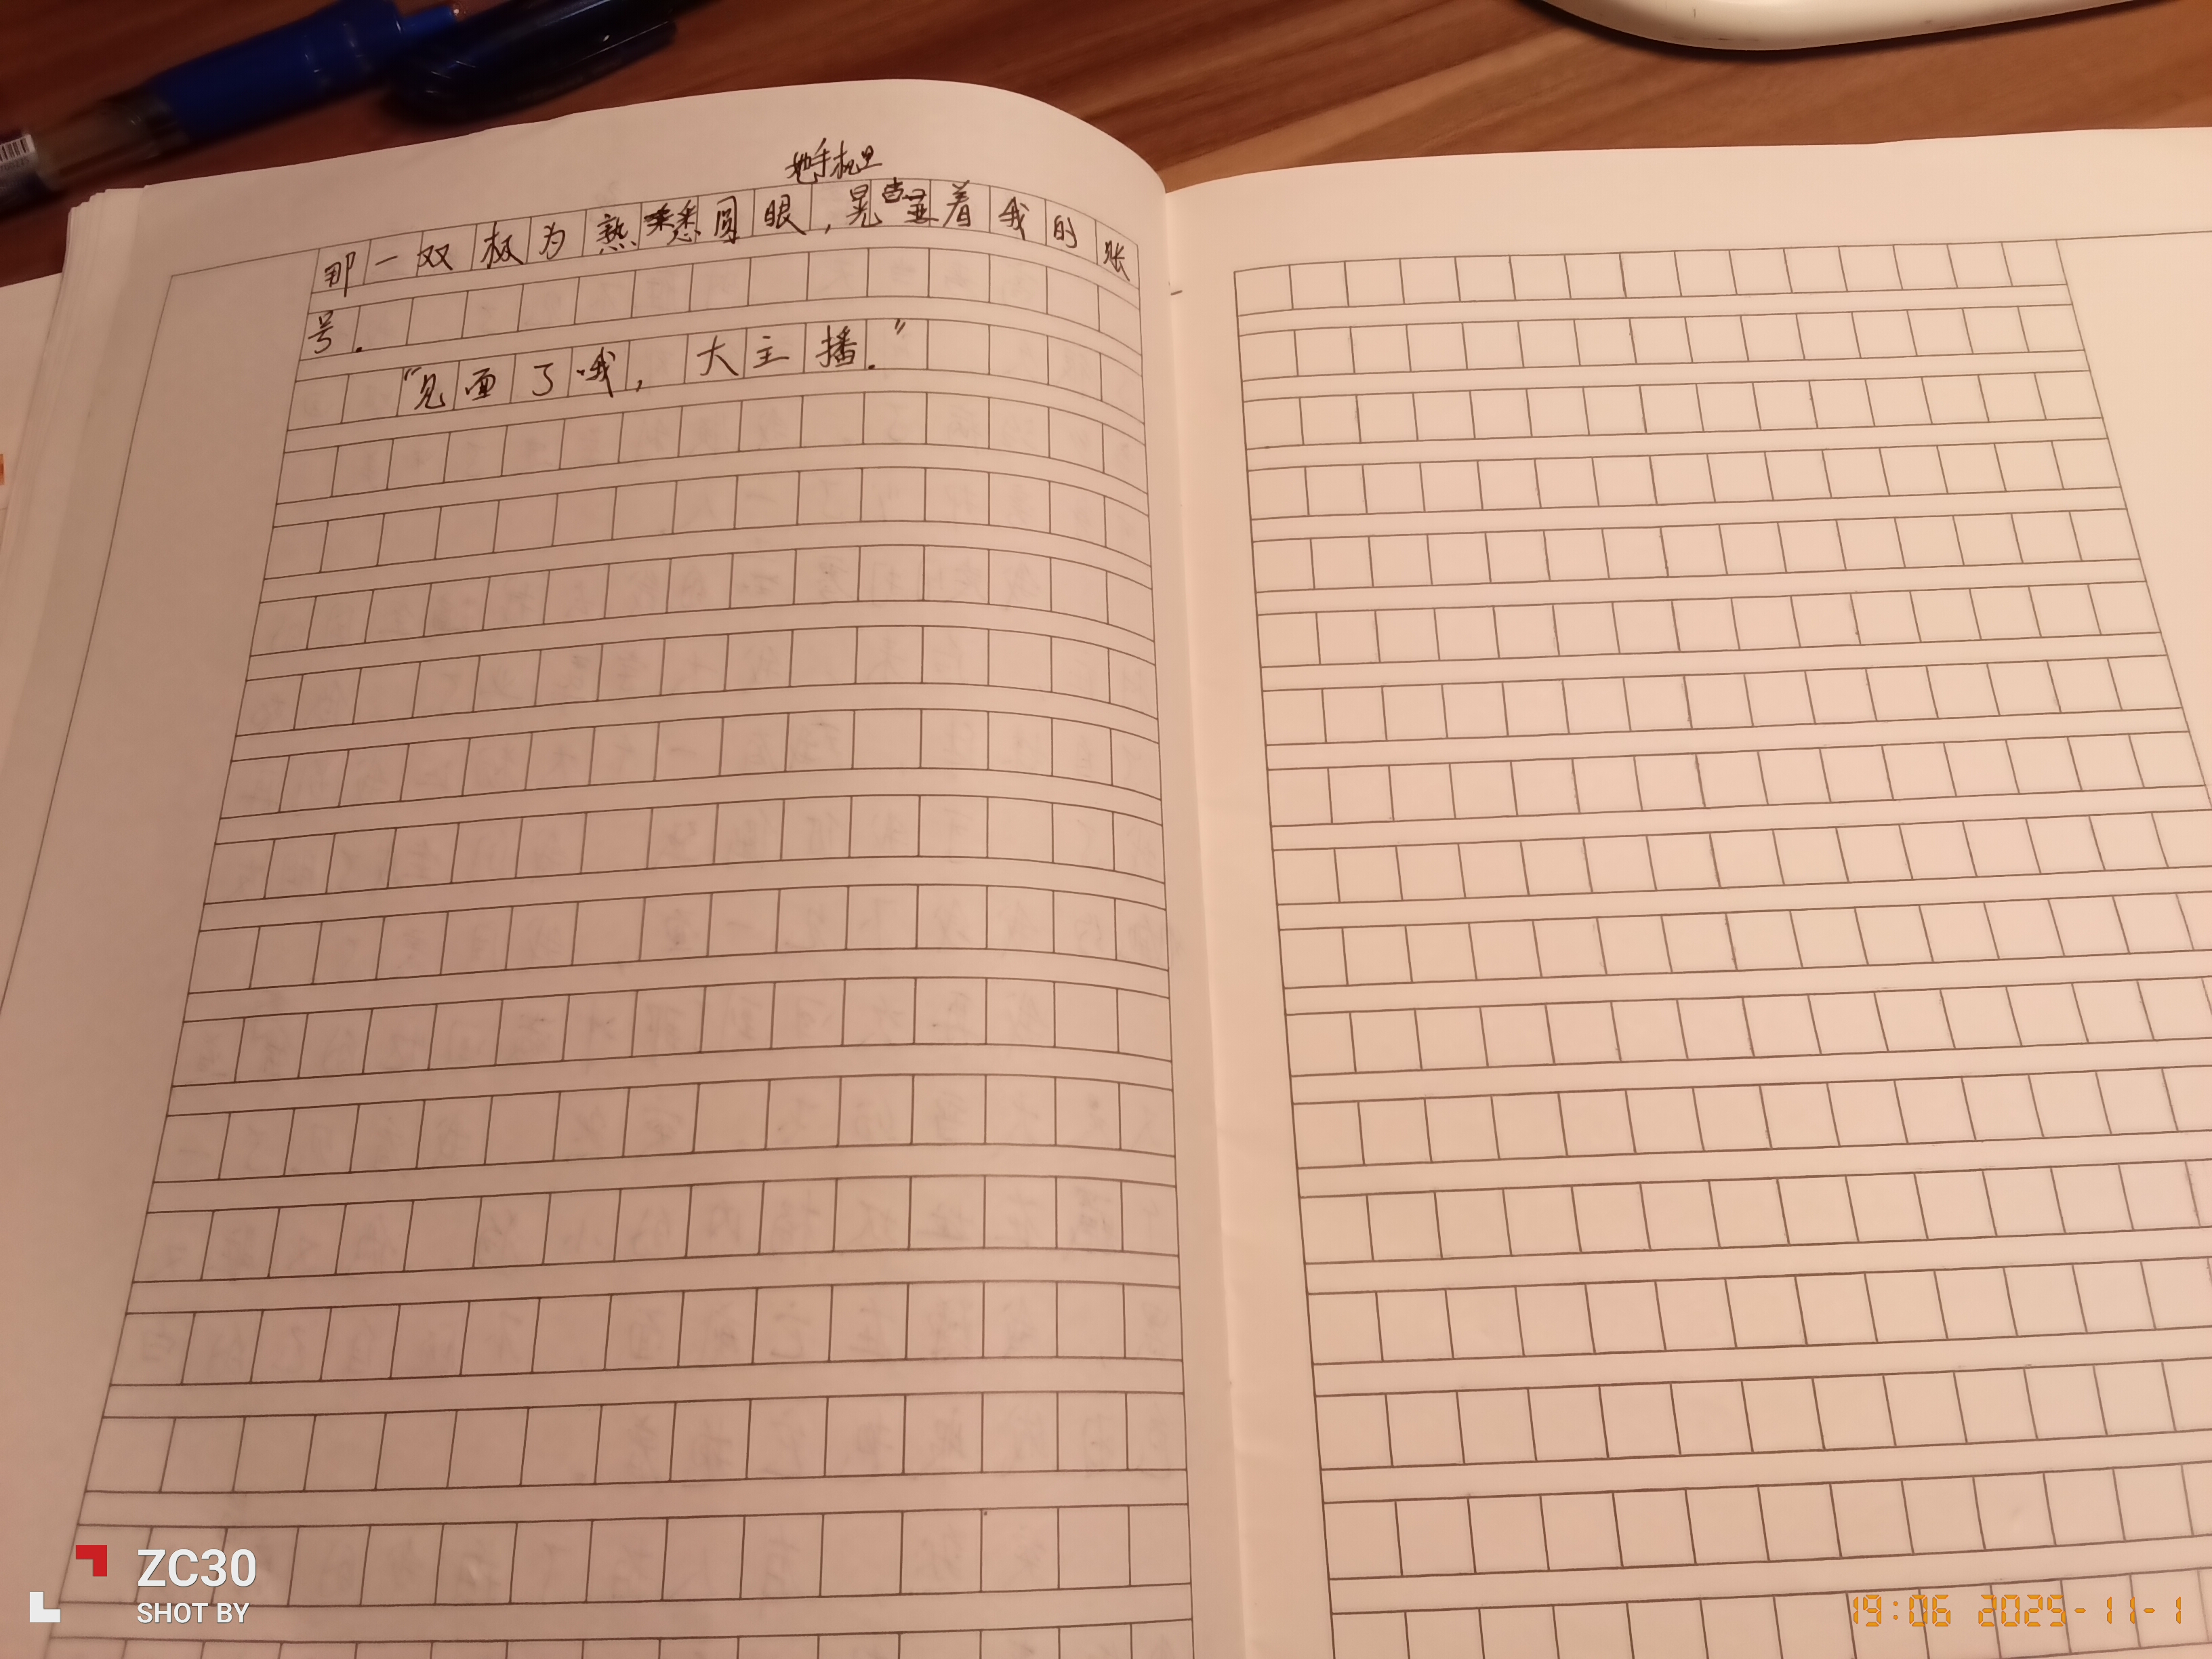 她手机里
那一双极为熟悉圆眼，晃着我的账
号．
“见面了哦，大主播．”
ZC30
SHOT BY
19:06 2025-11-1